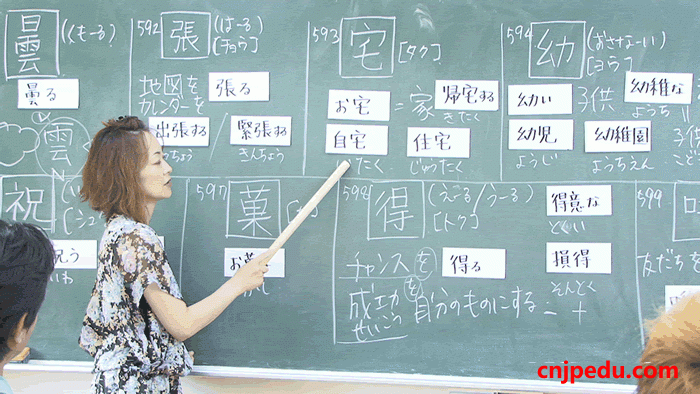 曇
(くも-る)
曇る
雲
592
張
(は-る)
[チョウ]
地図を
カレンダーを
張る
出張する
緊張する
きんちょう
593
宅
[タク]
お宅 = 家
帰宅する
きたく
自宅
住宅
じゅうたく
594
幼
(おさな-い)
[ヨウ]
幼い
子供
幼稚な
ようち
幼児
ようじ
幼稚園
ようちえん
祝
597
菓
598
得
(え-る/う-る)
[トク]
得意な
とくい
チャンスを
得る
損得
そんとく
成功を自分のものにする = +
せいこう
599
友だちを
cnjpedu.com